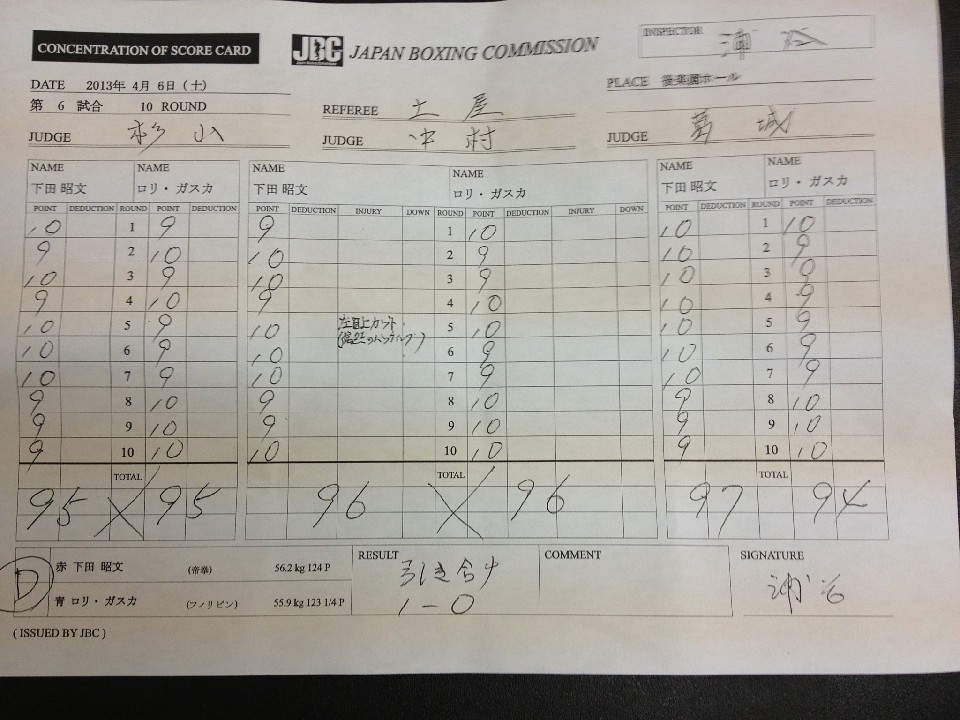 CONCENTRATION OF SCORE CARD
JBC JAPAN BOXING COMMISSION
INSPECTOR
DATE 2013年 4月 6日 (土)
PLACE 後楽園ホール
第 6 試合 10 ROUND
REFEREE 土屋
JUDGE 杉山
JUDGE 中村
JUDGE 葛城
NAME NAME NAME NAME NAME NAME
下田 昭文 ロリ・ガスカ 下田 昭文 ロリ・ガスカ 下田 昭文 ロリ・ガスカ
POINT DEDUCTION ROUND POINT DEDUCTION POINT DEDUCTION INJURY DOWN ROUND POINT DEDUCTION INJURY DOWN POINT DEDUCTION ROUND POINT DEDUCTION
10 1 9 9 1 10 10 1 10
9 2 10 10 2 9 10 2 9
10 3 9 10 3 9 10 3 9
9 4 10 9 4 10 10 4 9
10 5 9 10 左目上カット 5 10 10 5 9
(偶然のバッティング)
10 6 9 10 6 9 10 6 9
10 7 9 10 7 9 10 7 9
9 8 10 9 8 10 9 8 10
9 9 10 9 9 10 9 9 10
9 10 10 10 10 10 9 10 10
TOTAL TOTAL TOTAL
95 95 96 96 97 94
D
赤 下田 昭文 (帝拳) 56.2 kg 124 P
青 ロリ・ガスカ (フィリピン) 55.9 kg 123 1/4 P
RESULT
引き分け
1-0
COMMENT
SIGNATURE
( ISSUED BY JBC )